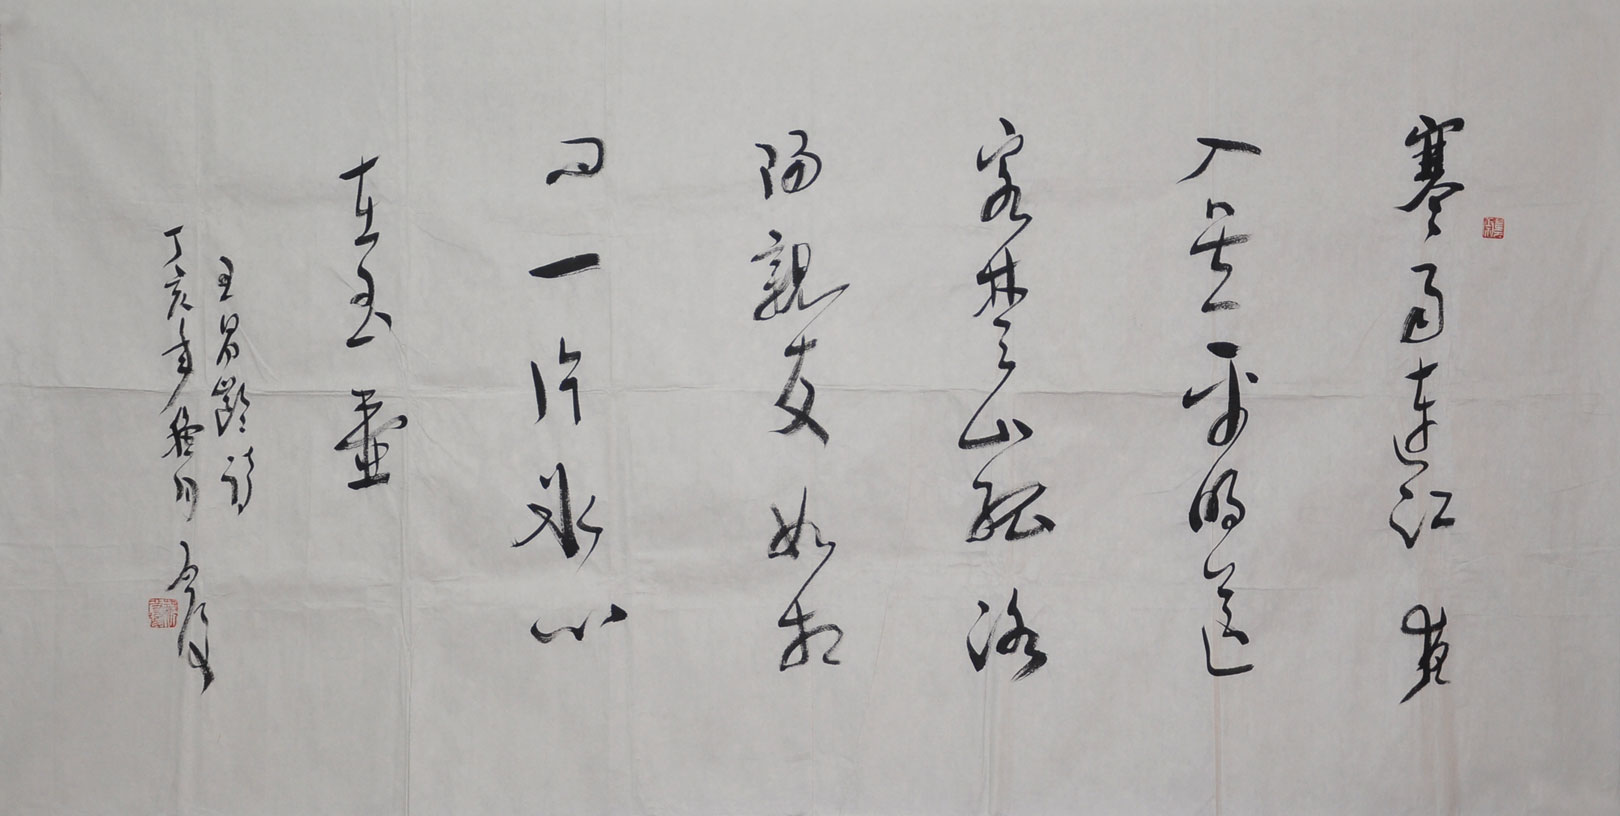 寒雨連江夜
入吳平明送
客楚山孤洛
陽親友如相
問一片冰心
在玉壺
王昌齡詩
丁亥年